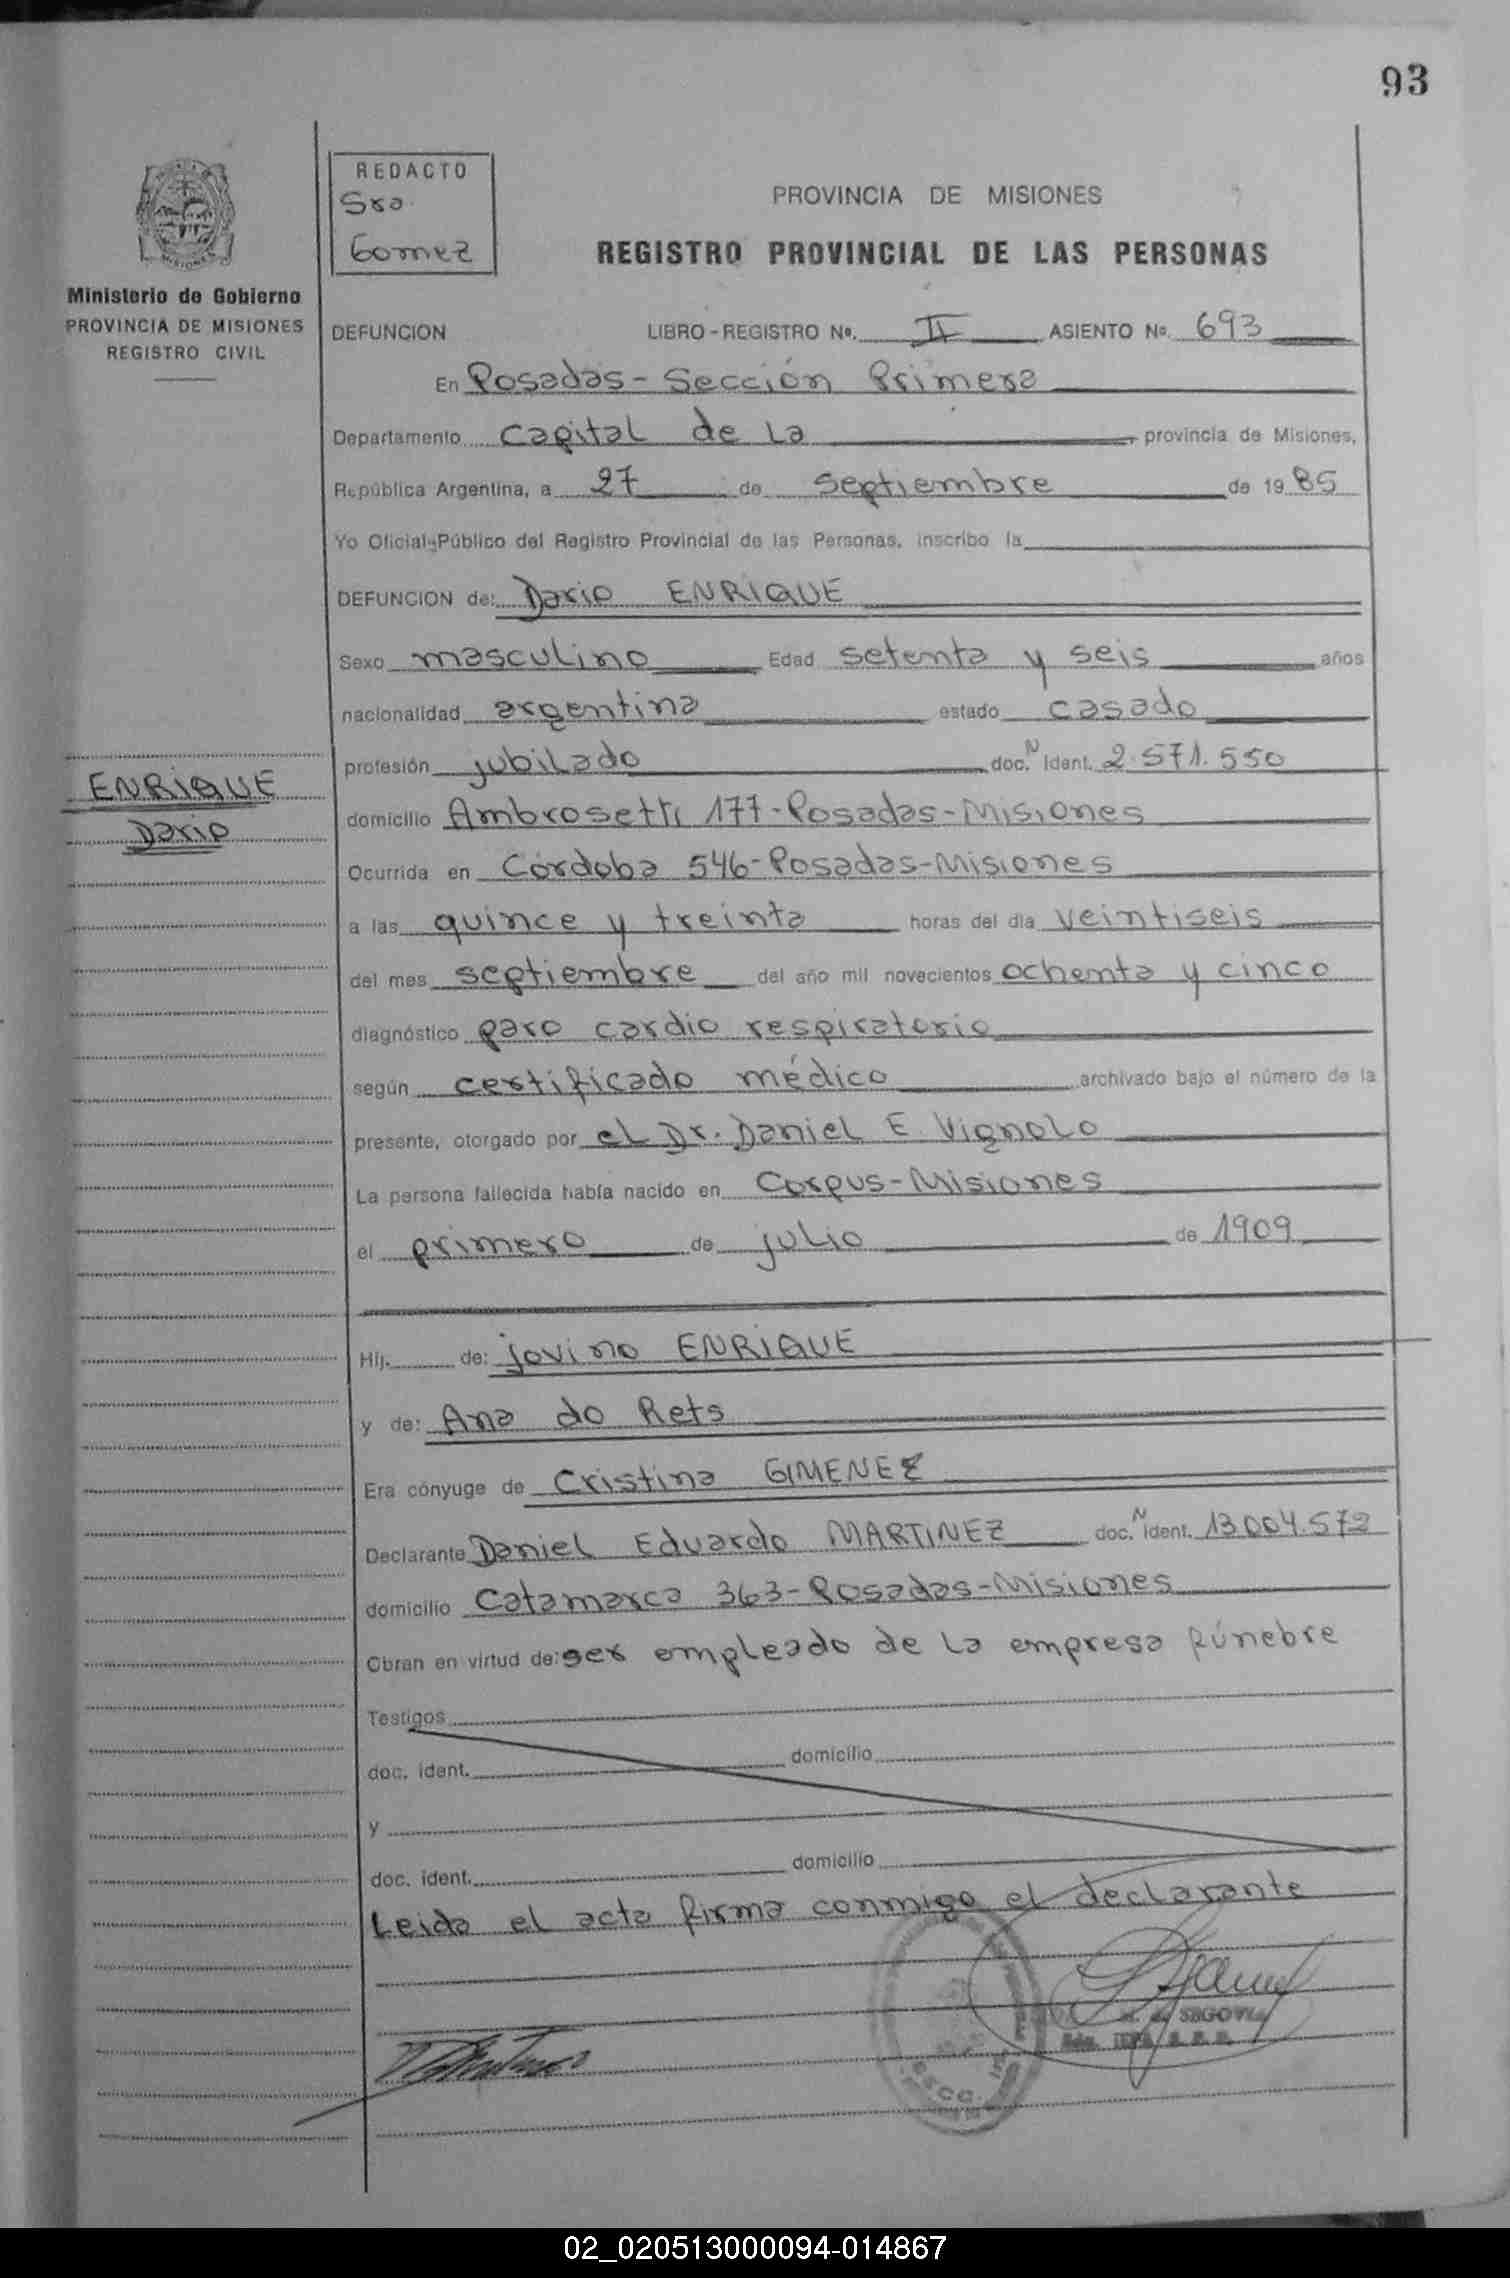 93
REDACTO
Sra.
Gomez
PROVINCIA DE MISIONES
REGISTRO PROVINCIAL DE LAS PERSONAS
Ministerio de Gobierno
PROVINCIA DE MISIONES
REGISTRO CIVIL
DEFUNCION LIBRO-REGISTRO Nº. II ASIENTO Nº. 693
En Posadas - Sección Primera
Departamento Capital de La provincia de Misiones,
República Argentina, a 27 de septiembre de 19 85
Yo Oficial Público del Registro Provincial de las Personas, inscribo la
DEFUNCION de: Dario ENRIQUE
Sexo masculino Edad setenta y seis años
nacionalidad argentina estado casado
profesión jubilado doc. N ident. 2.571.550
ENRIQUE
Dario
domicilio Ambrosetti 177-Posadas-Misiones
Ocurrida en Córdoba 546-Posadas-Misiones
a las quince y treinta horas del día veintiseis
del mes septiembre del año mil novecientos ochenta y cinco
diagnóstico paro cardio respiratorio
según certificado médico archivado bajo el número de la
presente, otorgado por el Dr. Daniel E. Vignolo
La persona fallecida había nacido en Corpus-Misiones
el primero de julio de 1909
Hij. de: jovino ENRIQUE
y de: Ana do Rets
Era cónyuge de Cristina GIMENEZ
Declarante Daniel Eduardo MARTINEZ doc. N ident. 13.004.572
domicilio Catamarca 363-Posadas-Misiones
Obran en virtud de: ser empleado de la empresa fúnebre
Testigos
doc. ident. domicilio
y
doc. ident. domicilio
Leida el acta firma conmigo el declarante
SEGOVIA
02_020513000094-014867